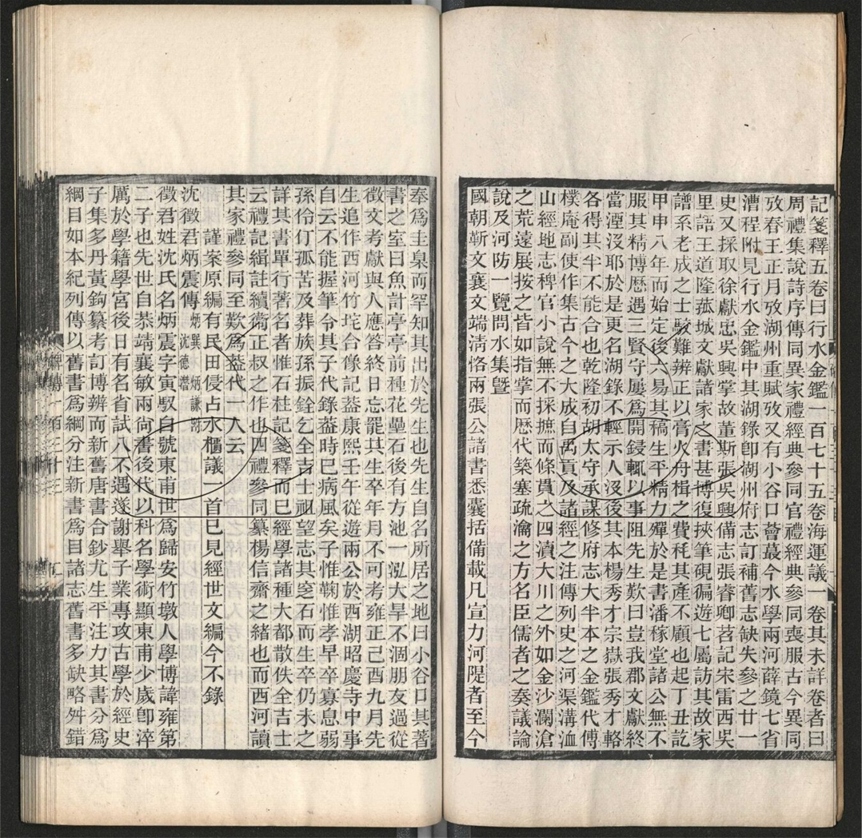 記箋釋五卷曰行水金鑑一百七十五卷海運議一卷其未詳卷者曰
周禮集說詩序傳同異家禮經典參同官禮經典參同喪服古今異同
攷春王正月攷湖州重賦攷又有小谷口薈蕞今水學兩河薛鏡七省
漕程附見行水金鑑中其湖錄卽湖州府志訂補舊志缺失參之廿一
史又採取徐獻忠吳興掌故董斯張吳興備志張睿卿苕記宋雷西吳
里語王道隆菰城文獻諸家之書甚博復挾筆硯徧遊七屬訪其故家
譜系老成之士駁難辨正以膏火舟楫之費秏其產不顧也起丁丑訖
甲申八年而始定後六易其稿生平精力殫於是書潘稼堂諸公無不
服其精博歷遇三賢守屢爲開鋟輒以事阻先生歎曰豈我郡文獻終
當湮沒耶於是更名湖錄不輕示人沒後其本楊秀才宗嶽張秀才輅
各得其半不能合也乾隆初胡太守承謀修府志大半本之金鑑代傅
樸庵副使作集古今之大成自禹貢及諸經之注傳列史之河渠溝洫
山經地志稗官小說無不採摭而條貫之四瀆大川之外如金沙瀾滄
之荒遠展按之皆如指掌而歷代築塞疏瀹之方名臣儒者之奏議論
說及河防一覽問水集曁
國朝靳文襄文端清恪兩張公諸書悉囊括備載凡宣力河隄者至今
奉爲圭臬而罕知其出於先生也先生自名所居之地曰小谷口其著
書之室曰魚計亭亭前種花壘石後有方池一泓大旱不涸朋友過從
徵文考獻與人應答終日忘罷其生卒年月不可考雍正己酉九月先
生追作西河竹垞合像記葢康熙壬午從遊兩公於西湖昭慶寺中事
自云不能握筆令其子代錄葢時已病風矣子惟鞠惟孝早卒寡息弱
孫伶仃孤苦及葬族孫振銓乞全吉士祖望志其窆石而生卒仍未之
詳其書單行著名者惟石柱記箋釋而已經學諸種大都散佚全吉士
云禮記緝註續衛正叔之作也四禮參同纂楊信齋之緒也而西河讀
其家禮參同至歎爲葢代一人云
謹案原編有民田侵占水櫃議一首已見經世文編今不錄
沈徵君炳震傳
徵君姓沈氏名炳震字寅馭自號東甫世爲歸安竹墩人學博諱雍第
二子也先世自恭靖襄敏兩尙書後代以科名學術顯東甫少歲卽淬
厲於學籍學宮後日有名省試八不遇遂謝舉子業專攻古學於經史
子集多丹黃鉤纂考訂博辨而新舊唐書合鈔尤生平注力其書分爲
綱目如本紀列傳以舊書爲綱分注新書爲目諸志舊書多缺略舛錯